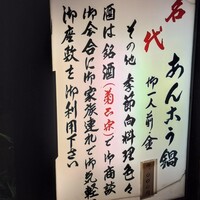 名代
あんこう鍋
御一人前金
その他季節向料理色々
酒は銘酒(菊正宗)で御商談
御会合に御家族連れで御気軽に
御座敷を御利用下さい